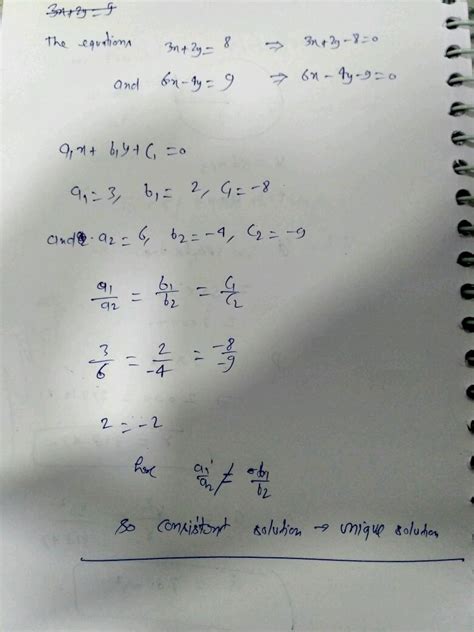 3x+2y=9
The equations 3x+2y=8 ⇒ 3x+2y-8=0
and 6x-4y=9 ⇒ 6x-4y-9=0
a₁x+b₁y+C₁=0
a₁=3, b₁=2, C₁=-8
and a₂=6, b₂=-4, C₂=-9
a₁/a₂ = b₁/b₂ = C₁/C₂
3/6 = 2/-4 = -8/-9
2=-2
here a₁/a₂ ≠ b₁/b₂
so consistent solution → unique solution